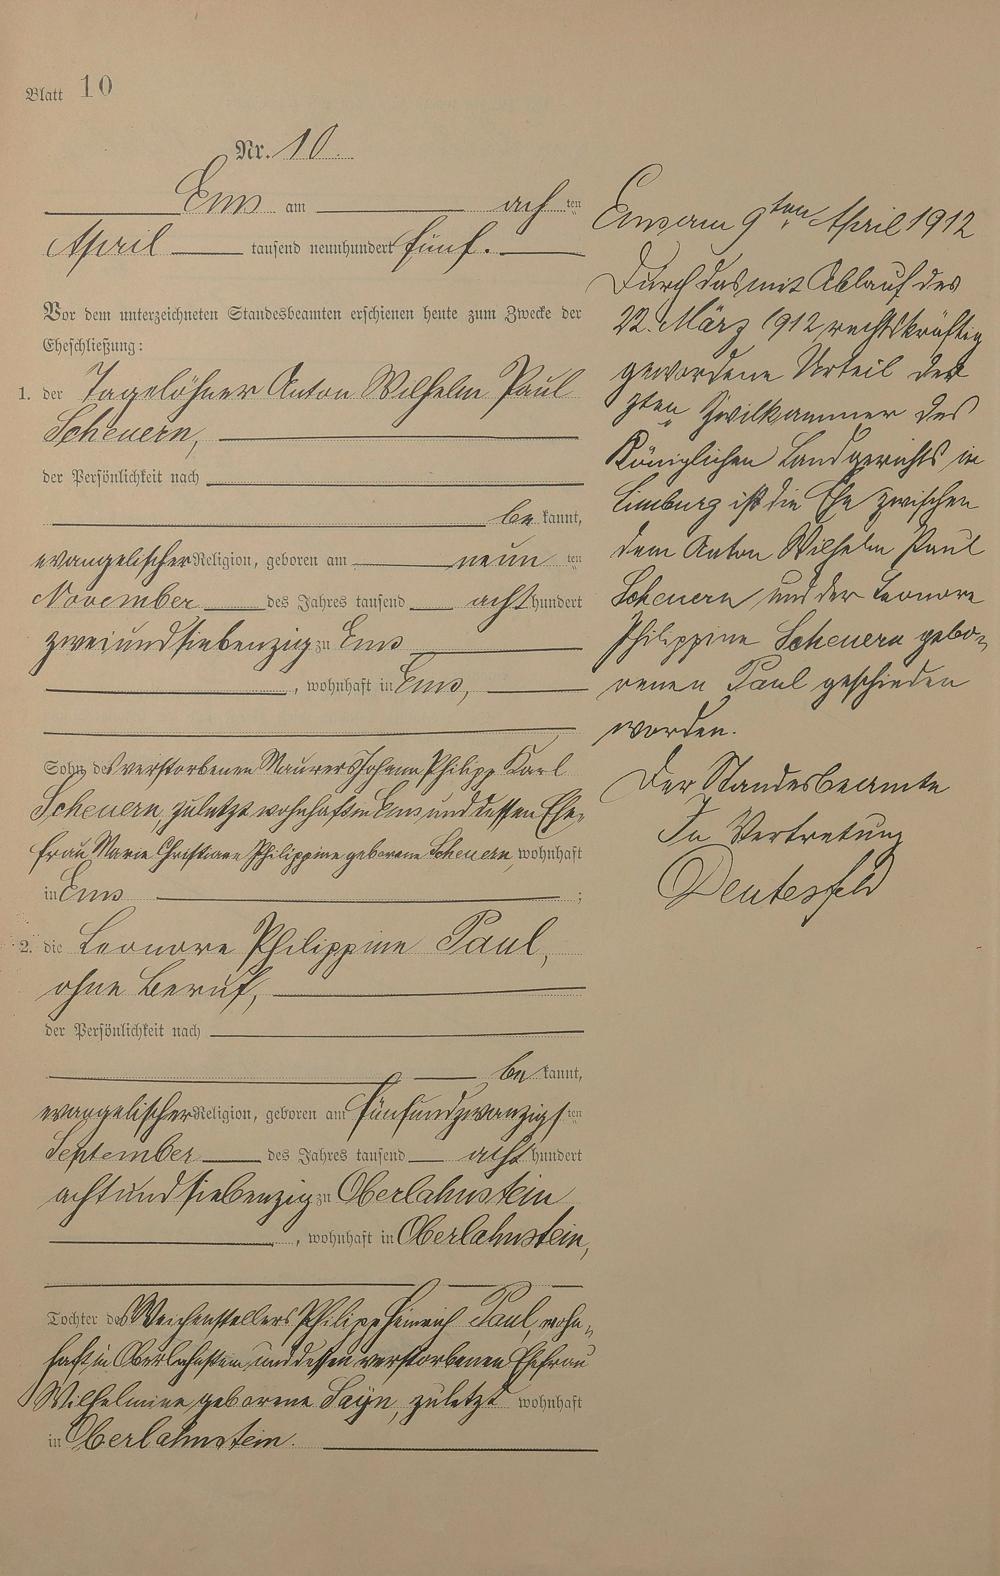 Blatt 10
Nr. 10.
Ems am acht ten
April tausend neunhundert fünf.
Vor dem unterzeichneten Standesbeamten erschienen heute zum Zwecke der
Eheschließung:
1. der Tagelöhner Anton Wilhelm Paul
Scheuern,
der Persönlichkeit nach
be kannt,
evangelischer Religion, geboren am neun ten
November des Jahres tausend acht hundert
zweiundsiebenzig zu Ems
, wohnhaft in Ems,
Sohn des verstorbenen Maurers Johann Philipp Karl
Scheuern, zuletzt wohnhaft in Ems und dessen Ehe-
frau Marie Christiane Philippine geborene Scheuern, wohnhaft
in Ems ;
2. die Leonore Philippine Paul,
ohne Beruf,
der Persönlichkeit nach
be kannt,
evangelischer Religion, geboren am fünfundzwanzigs ten
September des Jahres tausend acht hundert
achtundsiebenzig zu Oberlahnstein
, wohnhaft in Oberlahnstein,
Tochter des Weichenstellers Philipp Heinrich Paul, wohn-
haft in Oberlahnstein und dessen verstorbenen Ehefrau
Wilhelmine geborene Sayn, zuletzt wohnhaft
in Oberlahnstein.
Ems am 9ten April 1912
Durch das mit Ablauf des
22. März 1912 rechtskräftig
gewordene Urteil der
Zivilkammer des
Königlichen Landgerichts in
Limburg ist die Ehe zwischen
dem Anton Wilhelm Paul
Scheuern und der Leonore
Philippine Scheuern gebo-
renen Paul geschieden
worden.
Der Standesbeamte
In Vertretung